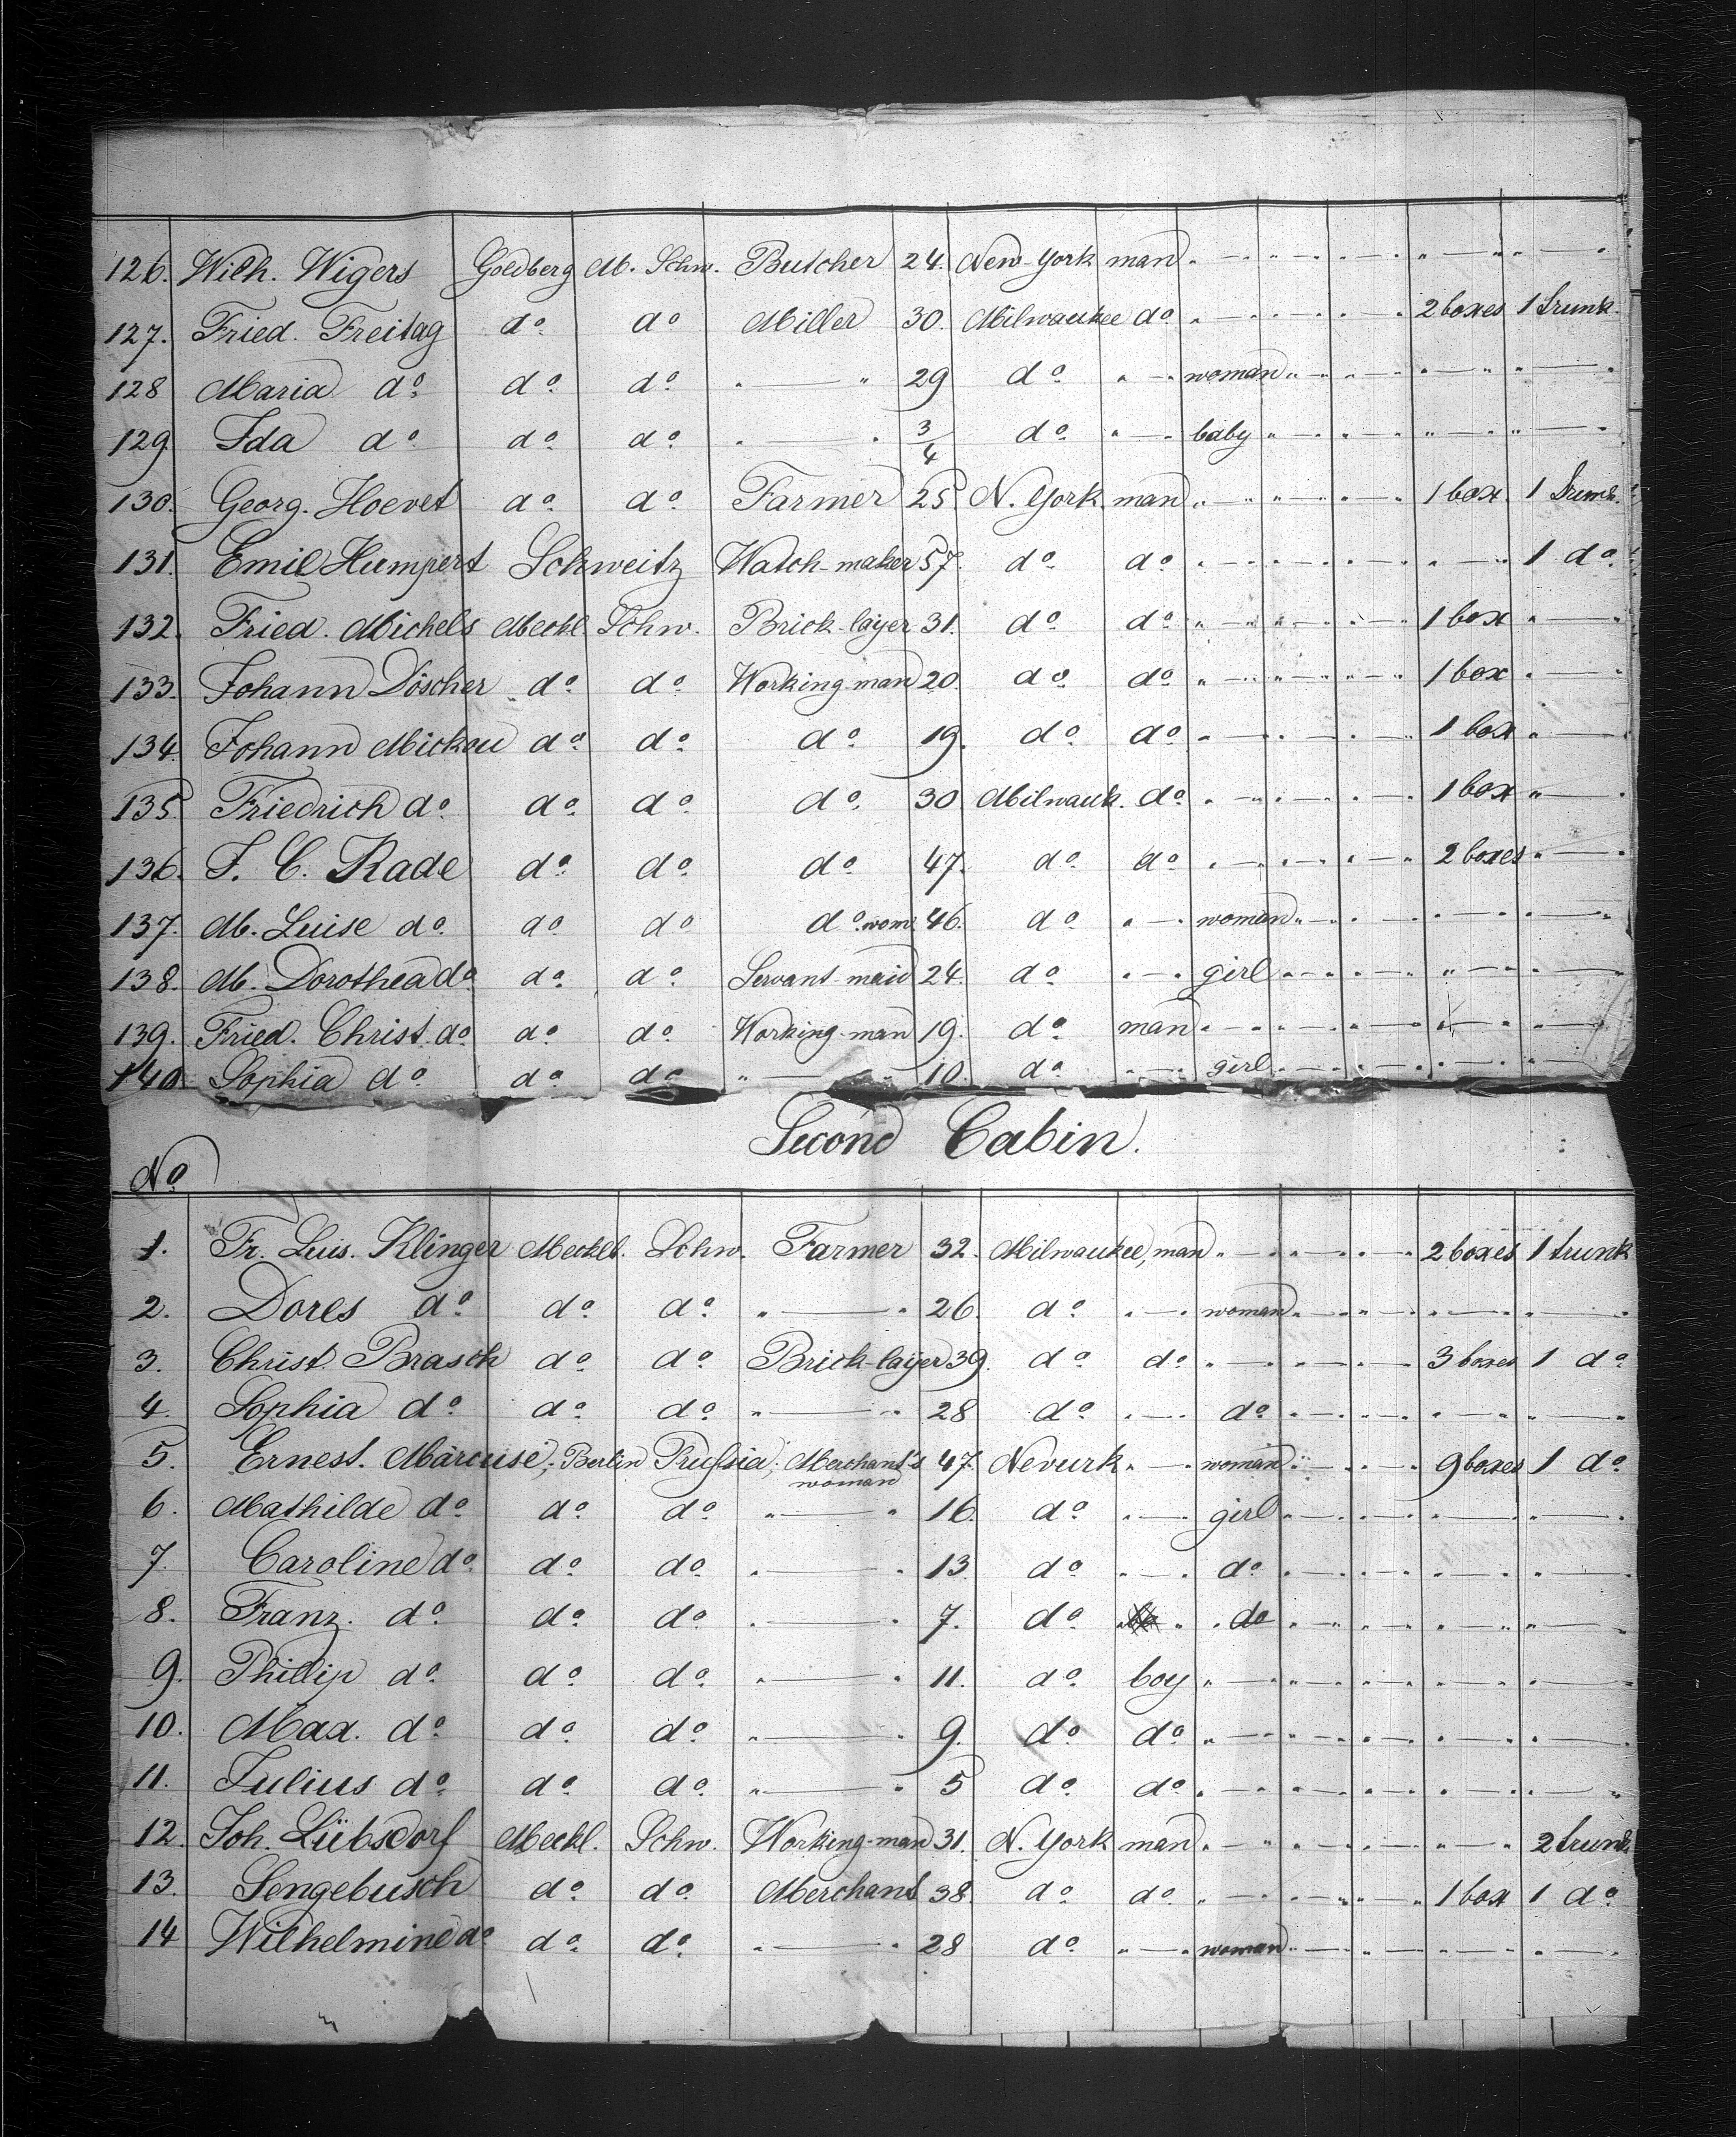 126. Wilh. Wigers Goldberg M. Schw. Butcher 24. New-York man
127. Fried. Freitag do do Miller 30. Milwaukee do 2 boxes 1 trunk.
128 Maria do do do 29 do woman
129. Ida do do do 3/4 do baby
130. Georg. Hoevet do do Farmer 25 N. York man 1 box 1 trunk.
131. Emil Humpert Schweitz Watch-maker 57. do do 1 do
132. Fried. Michels Meckl. Schw. Brick-layer 31. do do 1 box
133. Johann Döscher do do Working-man 20. do do 1 box
134. Johann Mickow do do do 19. do do 1 box
135. Friedrich do do do do 30 Milwauk. do 1 box
136. F. C. Rade do do do 47. do do 2 boxes
137. M. Luise do do do do wom. 46. do woman
138. M. Dorothea do do do Servant-maid 24. do girl
139. Fried. Christ. do do do Working-man 19. do man
140. Sophia do do do 10. do girl
Second Cabin.
No
1. Fr. Luis. Klinger Mecklb. Schw. Farmer 32. Milwaukee, man 2 boxes 1 trunk
2. Dores do do do 26. do woman
3. Christ. Brasch do do Brick-layer 39. do do 3 boxes 1 do
4. Sophia do do do 28 do do
5. Ernest. Marcuse; Berlin Prussia; Merchant's woman 47. Nevurk woman 9 boxes 1 do
6. Mathilde do do do 16. do girl
7. Caroline do do do 13. do do
8. Franz. do do do 7. do do
9. Phillip do do do 11. do boy
10. Max. do do do 9. do do
11. Julius do do do 5 do do
12. Joh. Lübsdorf Meckl. Schw. Working-man 31. N. York man 2 trunk.
13. Sengebusch do do Merchant 38. do do 1 box 1 do
14 Wilhelmine do do do 28 do woman